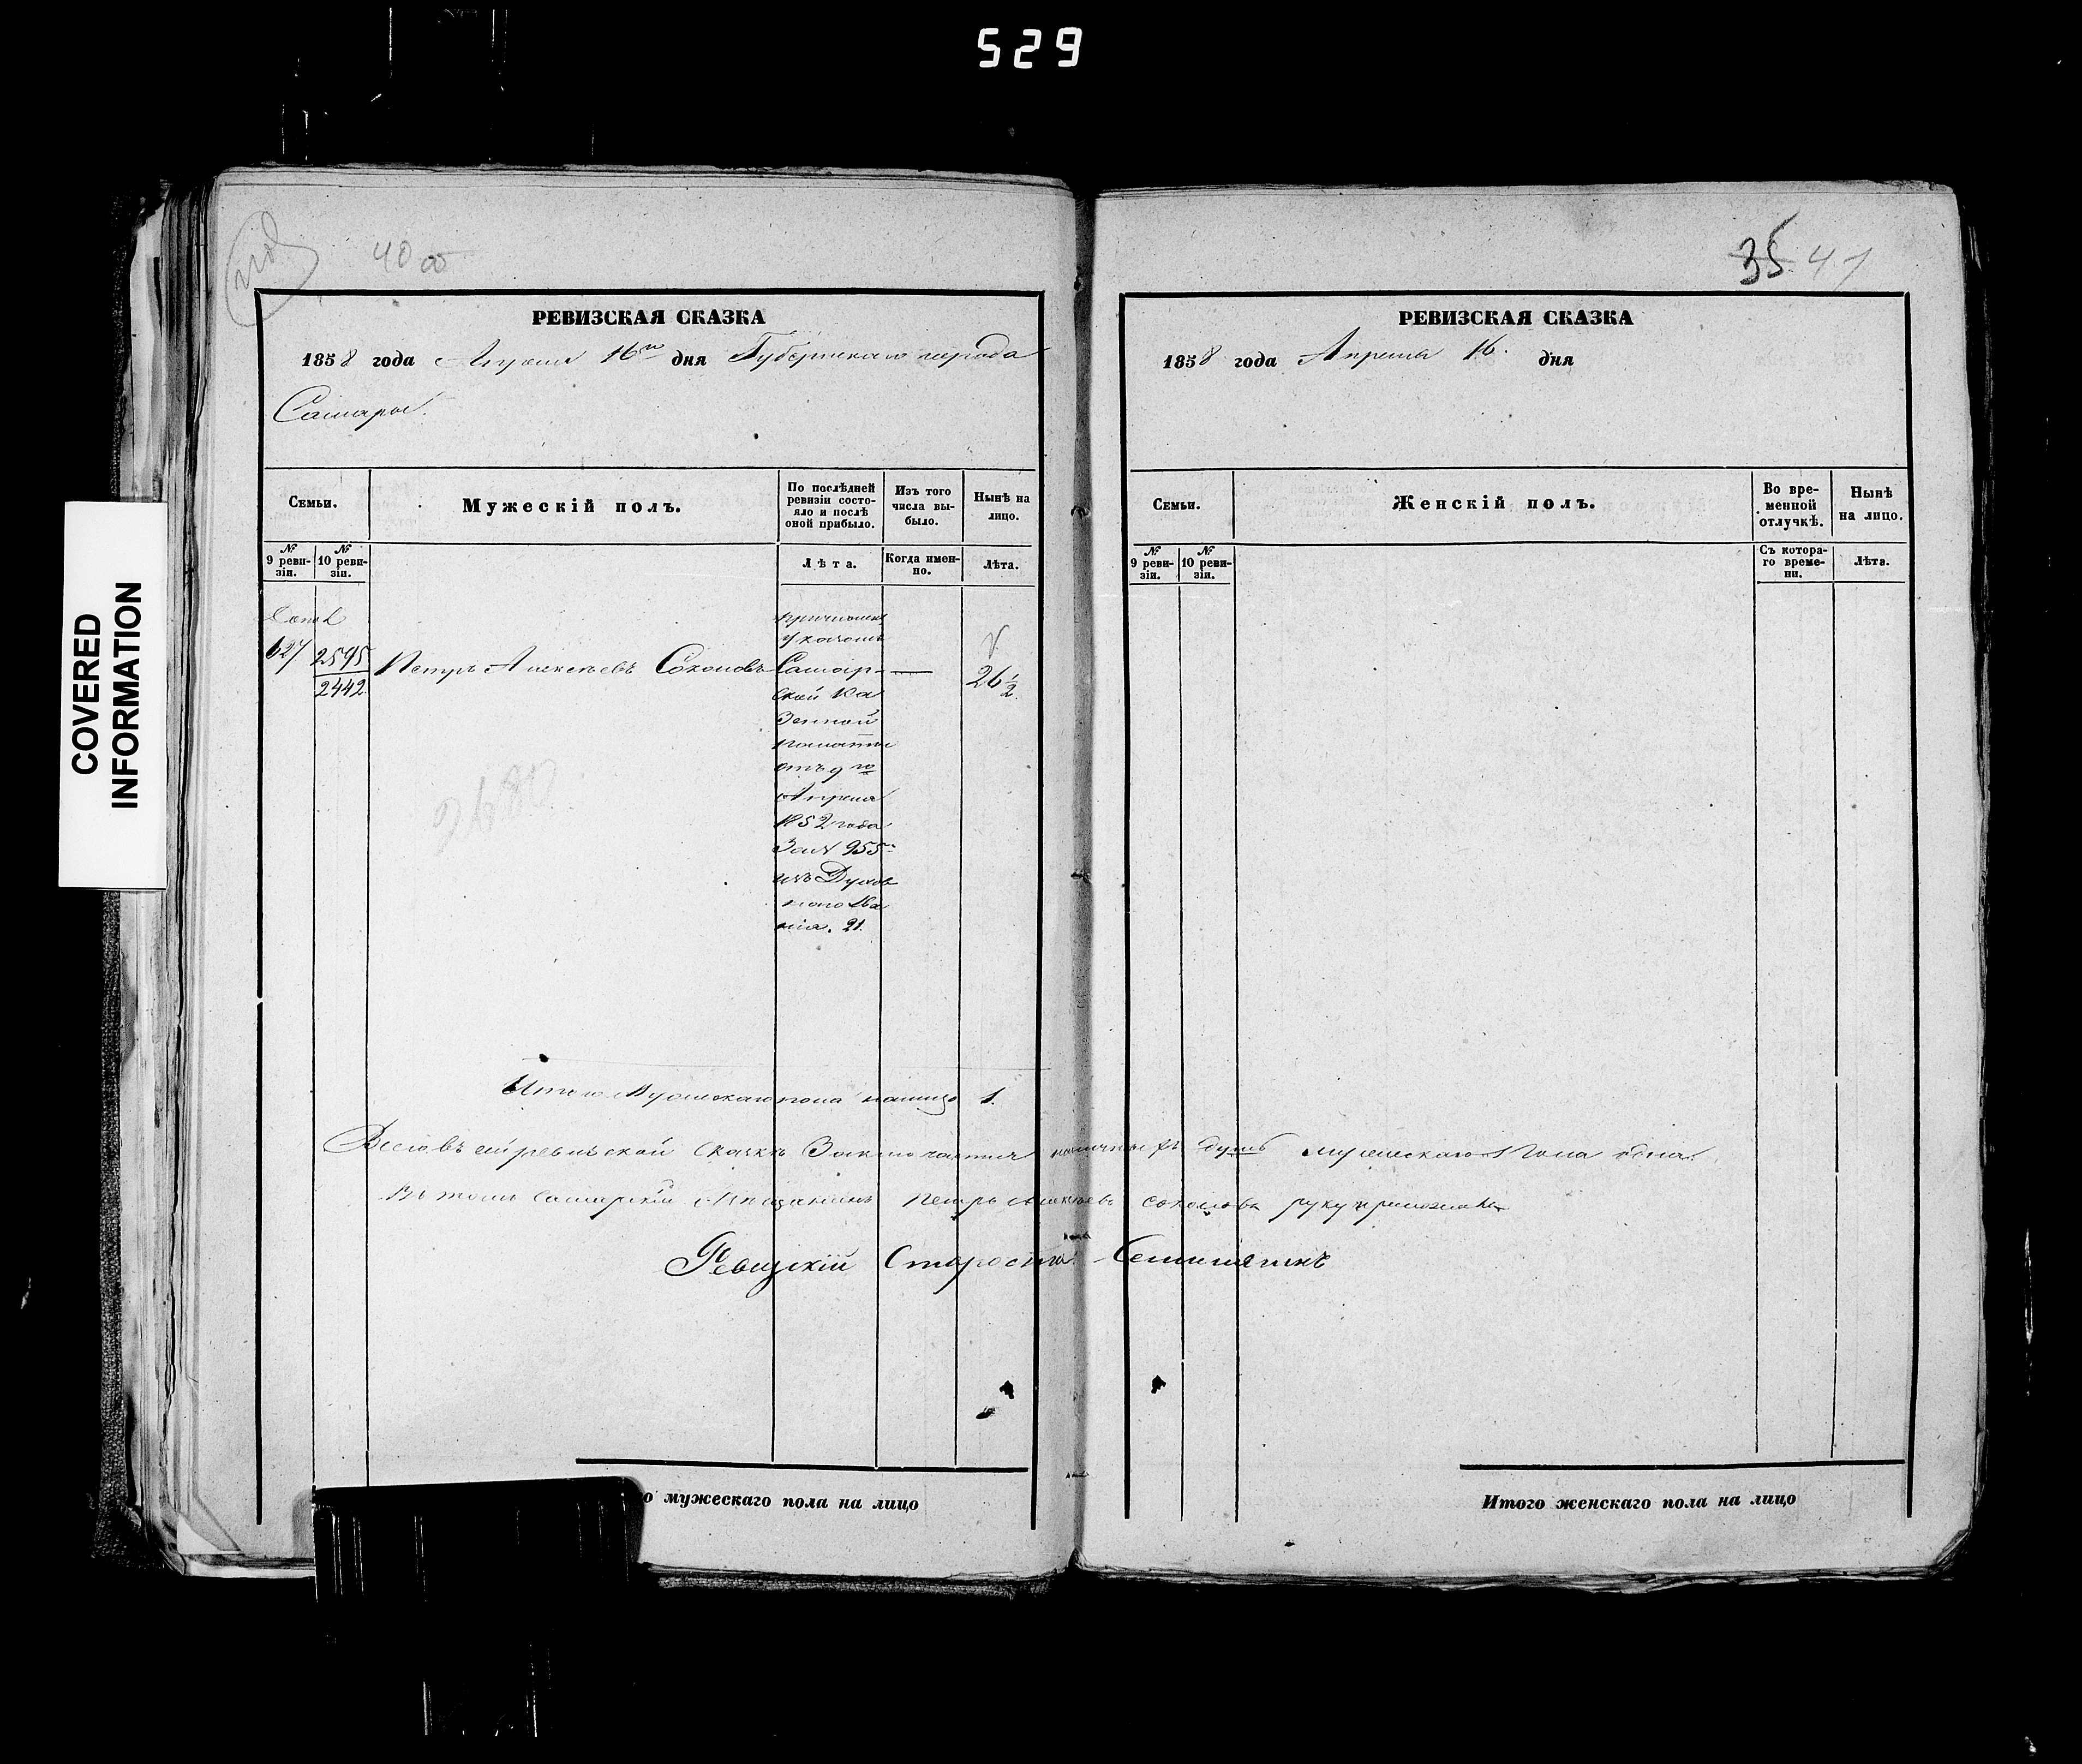 529
COVERED
INFORMATION
40 об
РЕВИЗСКАЯ СКАЗКА
1858 года Апреля 16го дня Губернскаго города
Самары.
Семьи.
Мужескій полъ.
По послѣдней ревизіи состо-
яло и послѣ
оной прибыло.
Изъ того
числа вы-
было.
Нынѣ на
лицо.
№
9 реви-
зіи.
№
10 реви-
зіи.
Лѣта.
Когда имен-
но.
Лѣта.
627
2595
2442
Петръ Алексѣевъ Соколовъ
Указомъ
Самар-
ской Ка
зенной
палаты
отъ 9го
Апреля
1852 года
за № 955
изъ Духов
наго зва
нія. 21.
26 1/2
2680
Итого Мужескаго пола налицо 1.
Всего въ сей ревизской сказкѣ Заключается наличныхъ душъ мужескаго Пола одна.
Къ томъ Самарскій Мѣщанинъ Петръ Алексѣевъ Соколовъ руку приложилъ
Ревизскій Староста
о мужескаго пола на лицо
35 41
РЕВИЗСКАЯ СКАЗКА
1858 года Апреля 16. дня
Семьи.
Женскій полъ.
Во вре-
менной
отлучкѣ.
Нынѣ
на лицо.
№
9 реви-
зіи.
№
10 реви-
зіи.
Съ котора-
го време-
ни.
Лѣта.
Итого женскаго пола на лицо